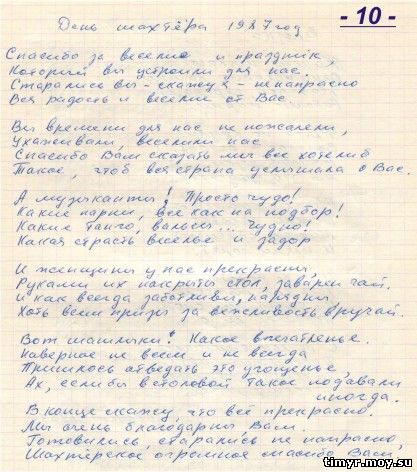 - 10 -
День шахтёра 1987 год
Спасибо за веселие и праздник,
Который вы устроили для нас.
Старались вы - скажу я - не напрасно
Вся радость и веселие от Вас.
Вы времени для нас не пожалели,
Ухаживали, веселили нас
Спасибо Вам сказать мы все хотели б
Такое, чтоб вся страна услышала о Вас.
А музыканты! Просто чудо!
Какие парни, все как на подбор!
Какие танго, вальсы... Чудно!
Какая страсть веселье и задор
И женщины у нас прекрасны,
Руками их накрыты стол, заварен чай.
и как всегда заботливы, нарядны
Хоть всем призы за вежливость вручай.
Вот шашлыки! Какое впечатленье.
Наверное не всем и не всегда
Пришлось отведать это угощенье,
Ах, если бы в столовой такое подавали
иногда.
В конце скажу, что всё прекрасно.
Мы очень благодарны Вам.
Готовились, старались не напрасно,
Шахтёрское огромное спасибо Вам
timyr.moy.su